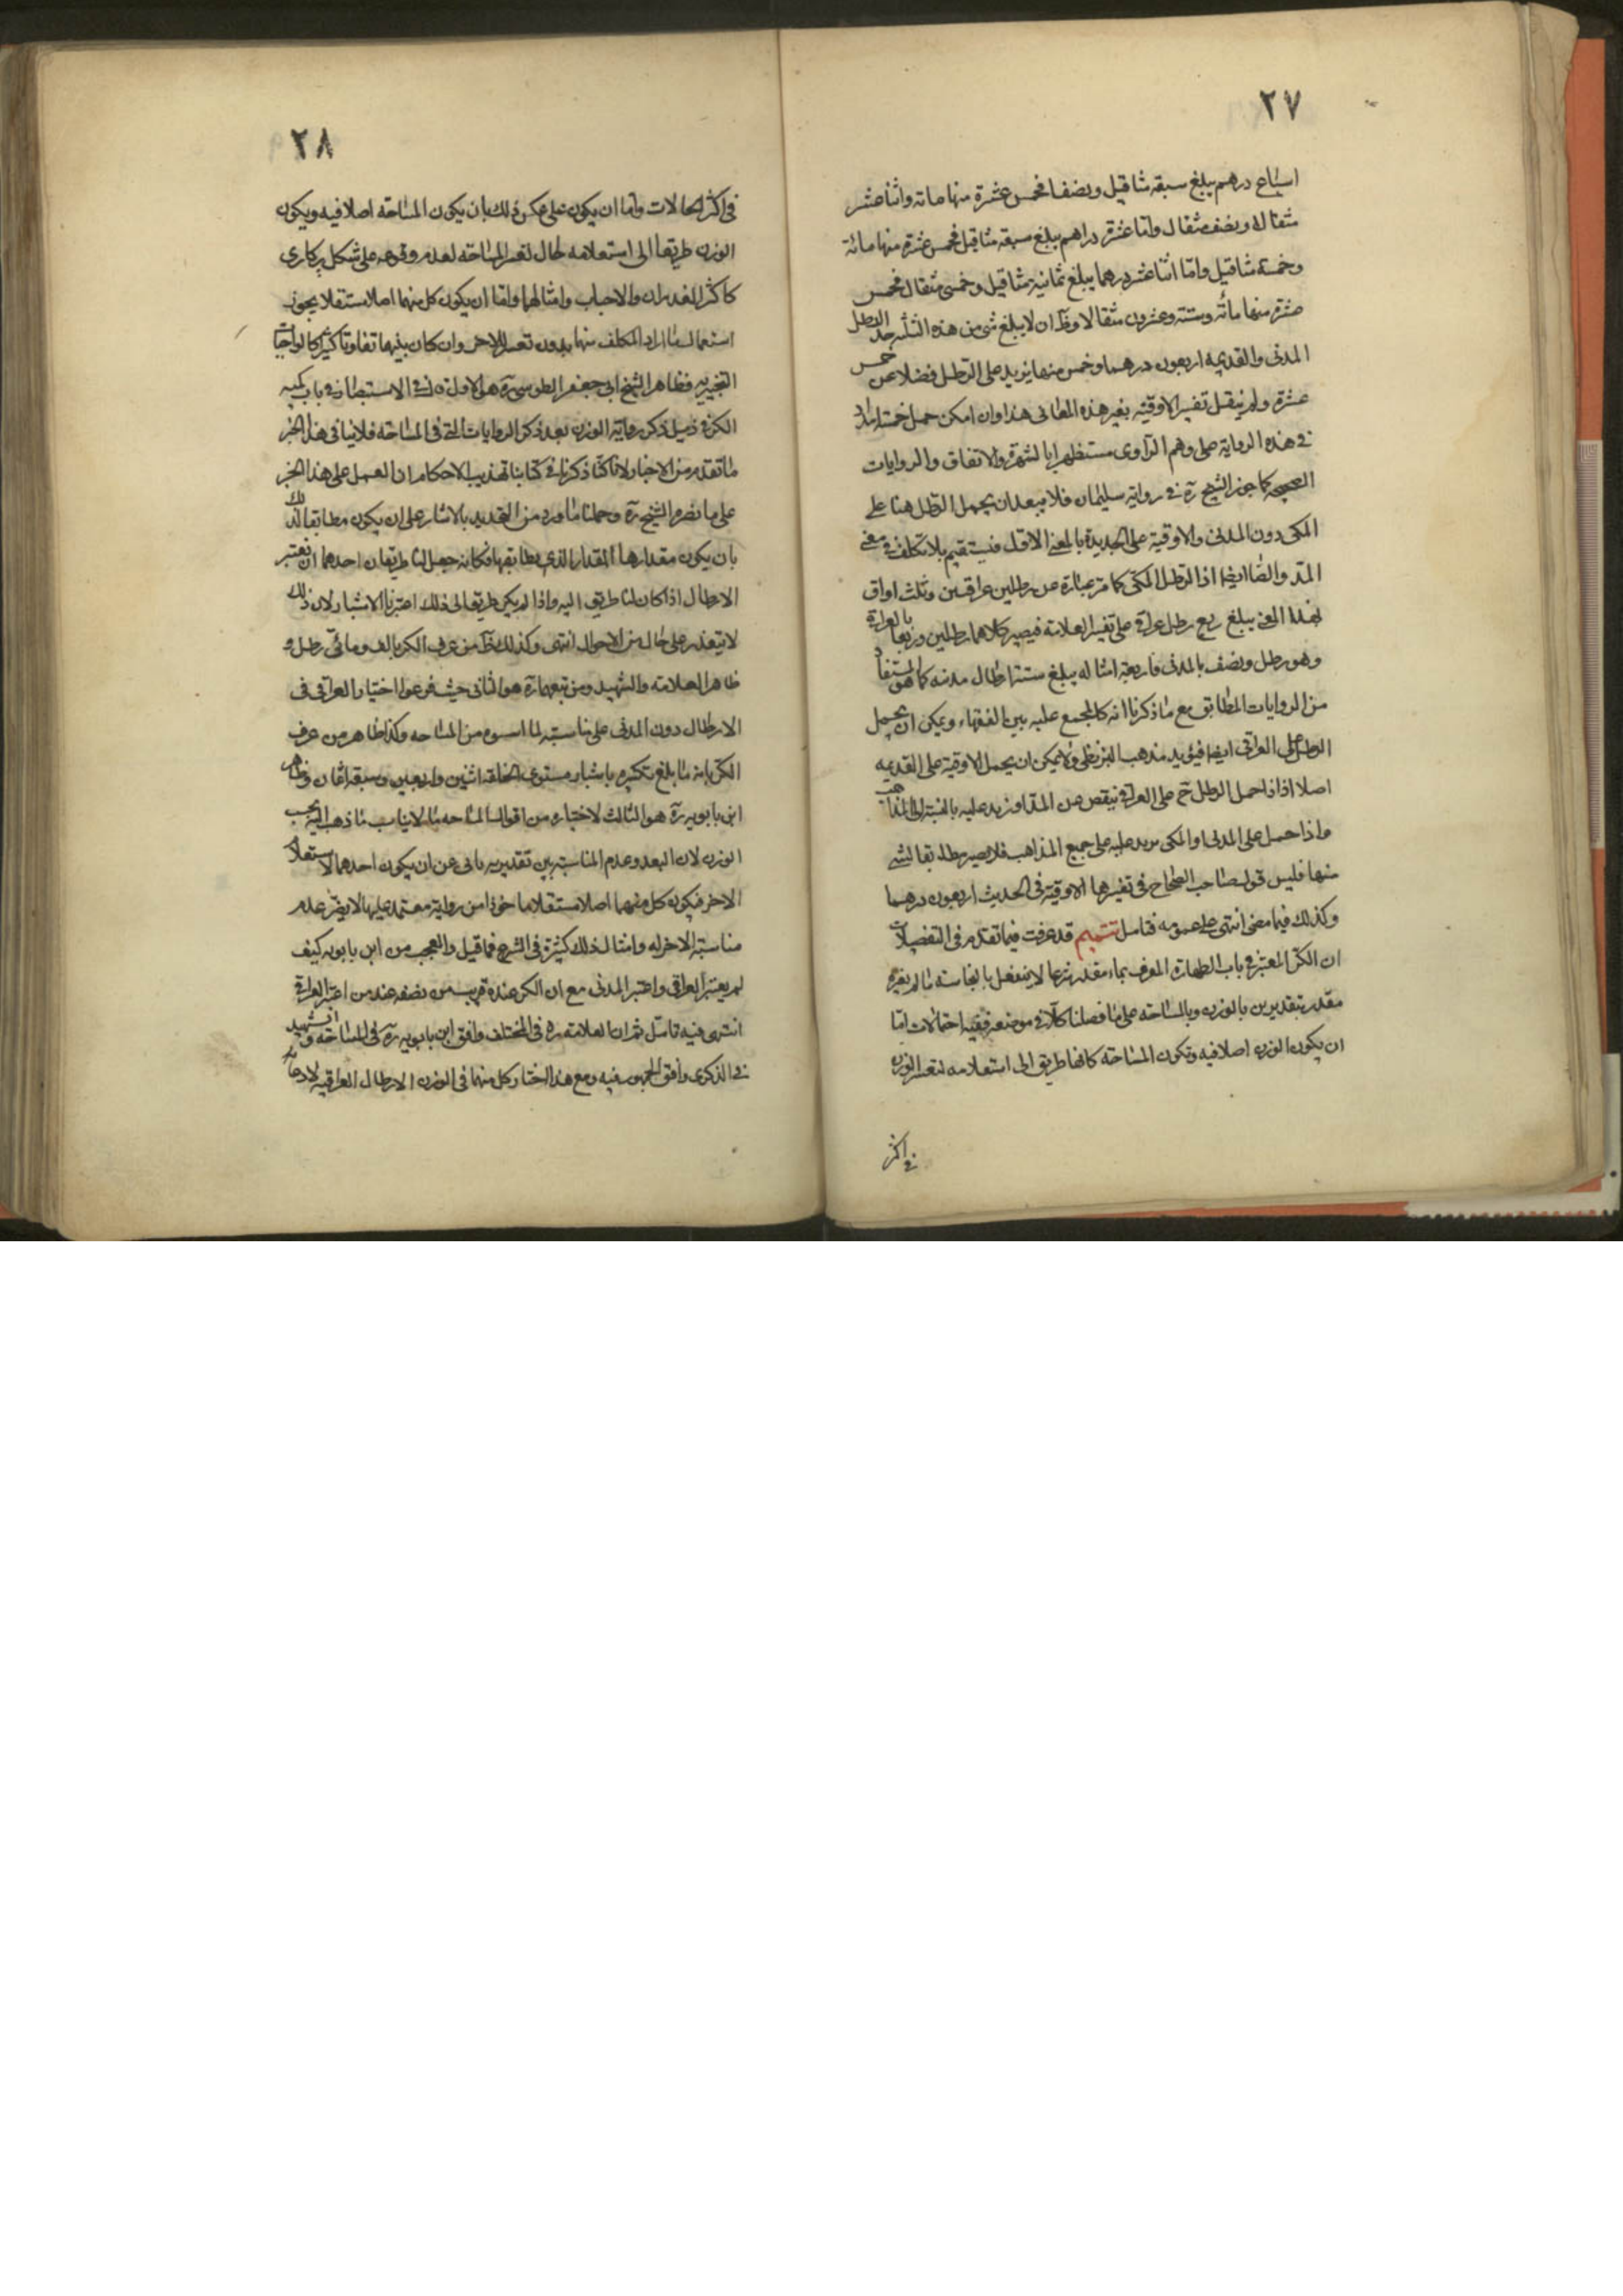 ٢٧
اسباع درهم يبلغ سبعة مثاقيل ونصفا فخمس عشرة منها مائة واثنا عشر
مثقالا ونصف مثقال واما عشرة دراهم يبلغ سبعة مثاقيل فخمس عشرة منها مائة
وخمسة مثاقيل واما اثنا عشر درهما يبلغ ثمانية مثاقيل وخمسي مثقال فخمس
عشرة منها مائة وستة وعشرون مثقالا وظ ان لا يبلغ شئ من هذه الثلثه حد الرطل
المدنى والقديمه اربعون درهما وخمس منها يزيد على الرطل فضلا عن خمس
عشرة ولم ينقل تفسير الاوقيه بغير هذه المعانى هذا وان امكن حمل خمسة امداد
فى هذه الرواية على وهم الراوى مستظهرا بالشهرة والاتفاق والروايات
الصحيحه كما جوز الشيخ ره فى رواية سليمان فلا يبعد ان يحمل الرطل هنا على
المكى دون المدنى والاوقية على الجديدة بالمعنى الاول فيستقيم بلا تكلف فى معنى
المد والصاع ايضا اذ الرطل المكى كما مر عبارة عن رطلين عراقيين وثلث اواق
بهذا المعنى يبلغ ربع رطل عراقى على تفسير العلامة فيصير كلاهما رطلين وربعا بالعراقى
وهو رطل ونصف بالمدنى فاربعة امثاله يبلغ ستة ارطال مدنيه كما هو المستفاد
من الروايات المطابق مع ما ذكرنا انه كالمجمع عليه بين الفقهاء ويمكن ان يحمل
الرطل على العراقى ايضا فيؤيد مذهب البزنطى ولا يمكن ان يحمل الاوقية على القديمه
اصلا اذ اذا حمل الرطل ح على العراقى ينقص عن المد او يزيد عليه بالنسبة الى المذاهب
واذا حمل على المدنى او المكى يزيد عليه على جميع المذاهب فلا يصير مطابقا لشئ
منها فليس قول صاحب الصحاح فى تفسيرها الاوقية فى الحديث اربعون درهما
وكذلك فيما مضى انتهى على عمومه فتامل تتميم قد عرفت فيما تقدم فى التفصيلات
ان الكر المعتبر فى باب الطهارة المعرف بماء مقدر شرعا لا ينفعل بالنجاسة ما لم يغيره
مقدر بتقديرين بالوزن وبالمساحة على ما فصلنا كلا فى موضعه ففيه احتمالات اما
ان يكون الوزن اصلا فيه وتكون المساحة كانها طريق الى استعلامه لتعسر الوزن
فى اكثر
٢٨
فى اكثر الحالات واما ان يكون على عكس ذلك بان يكون المساحة اصلا فيه ويكون
الوزن طريقا الى استعلامه حال تعسر المساحة لعدم وقوعه على شكل پركارى
كاكثر الغدران والاحباب وامثالهما واما ان يكون كل منهما اصلا مستقلا يجوز
استعمال ما اراد المكلف منها بدون تعسر للاخر وان كان بينهما تفاوتا كثيرا كالواجبات
التخييريه فظاهر الشيخ ابى جعفر الطوسى ره هو الاول اذ فى الاستبصار فى باب كميه
الكر فى ذيل ذكر رواية الوزن بعد ذكر الروايات التى فى المساحة فلا ينافى هذا الخبر
ما تقدم من الاخبار لانا كنا ذكرنا فى كتابنا تهذيب الاحكام ان العمل على هذا الخبر
على ما نصره الشيخ ره وحملنا ما ورد من التحديد بالاشبار على ان يكون مطابقا لذلك
بان يكون مقدارها المقدار الذى يطابقها فكانه جعل لنا طريقان احدهما ان نعتبر
الارطال اذا كان لنا طريق اليه واذا لم يكن طريق الى ذلك اعتبرنا الاشبار لان ذلك
لا يتعذر على حال من الاحوال انتهى وكذلك ظ من عرف الكر بالف ومائتى رطل و
ظاهر العلامه والشهيد ومن تبعهما ره هو الثانى حيث فرعوا اختيار العراقى فى
الارطال دون المدنى على مناسبته لما اسسوه من المساحه وكذا ظاهر من عرف
الكر بانه ما بلغ تكسيره باشبار مستوى الخلقه اثنين واربعين وسبعة اثمان وظاهر
ابن بابويه ره هو الثالث لاختياره من اقوال المساحه ما لا يناسب ما ذهب اليه بحسب
الوزن لان البعد وعدم المناسبة بين تقديريه يابى عن ان يكون احدهما لاستعلام
الاخر فيكون كل منهما اصلا مستقلا ماخوذا من رواية معتمد عليها لا يضر عدم
مناسبته للاخر له وامثال ذلك كثيرة فى الشرع فما قيل والعجب من ابن بابويه كيف
لم يعتبر العراقى واعتبر المدنى مع ان الكر عنده قريب من نصفه عند من اعتبر العراقى
انتهى فيه تامل ثم ان العلامة ره فى المختلف وافق ابن بابويه ره فى المساحه والشهيد
فى الذكرى وافق المجهور فيه ومع هذا اختار كل منهما فى الوزن الارطال العراقيه لادعاء